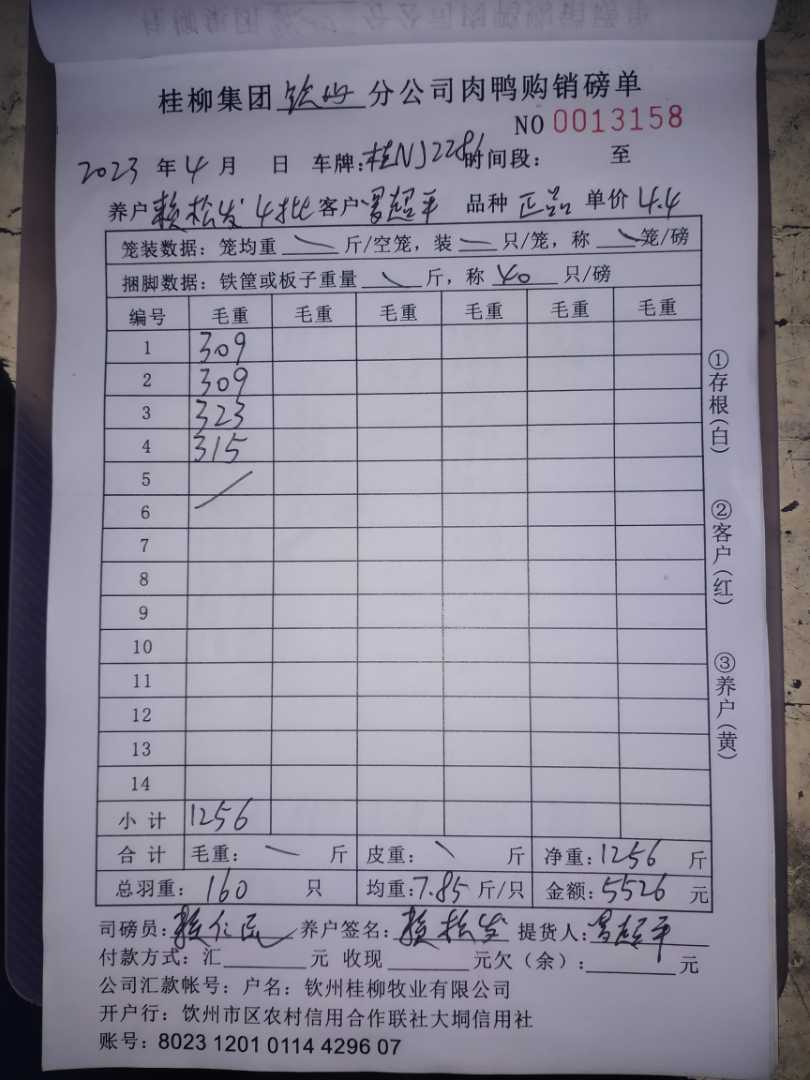 桂柳集团 钦州 分公司肉鸭购销磅单
NO 0013158
2023 年 4 月 日 车牌: 桂NJ2286 时间段: 至
养户 赖松发 4批 客户 曾超平 品种 正品 单价 4.4
笼装数据: 笼均重 斤/空笼, 装 只/笼, 称 笼/磅
捆脚数据: 铁筐或板子重量 斤, 称 40 只/磅
编号 毛重 毛重 毛重 毛重 毛重 毛重
1 309
2 309
3 323
4 315
5
6
7
8
9
10
11
12
13
14
小计 1256
合计 毛重: 斤 皮重: 斤 净重: 1256 斤
总羽重: 160 只 均重: 7.85 斤/只 金额: 5526 元
司磅员: 赖仁民 养户签名: 赖松发 提货人: 曾超平
付款方式: 汇 元 收现 元欠(余): 元
公司汇款帐号: 户名: 钦州桂柳牧业有限公司
开户行: 钦州市区农村信用合作联社大垌信用社
账号: 8023 1201 0114 4296 07
①存根(白)
②客户(红)
③养户(黄)